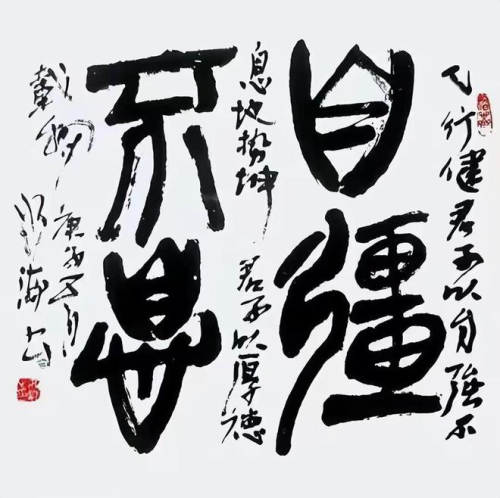 天行健君子以自強不
自彊
息地势坤君子以厚德
不息
載物
庚子五月
海上